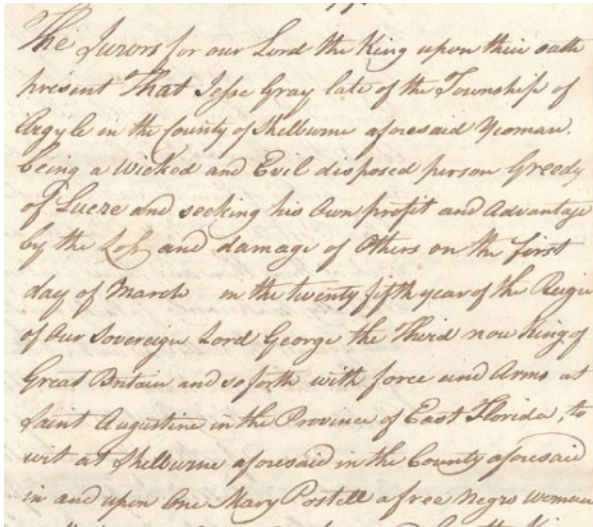 The Jurors for our Lord the King upon their oath
present That Jesse Gray late of the Township of
Argyle in the County of Shelburne aforesaid Yeoman.
being a Wicked and Evil disposed person Greedy
of Lucre and seeking his Own profit and Advantage
by the Loss and damage of Others on the first
day of March in the twenty fifth year of the Reign
of Our Sovereign Lord George the Third now King of
Great Britain and so forth with force and Arms at
Saint Augustine in the Province of East Florida, to
wit at Shelburne aforesaid in the County aforesaid
in and upon One Mary Postell a free Negro woman